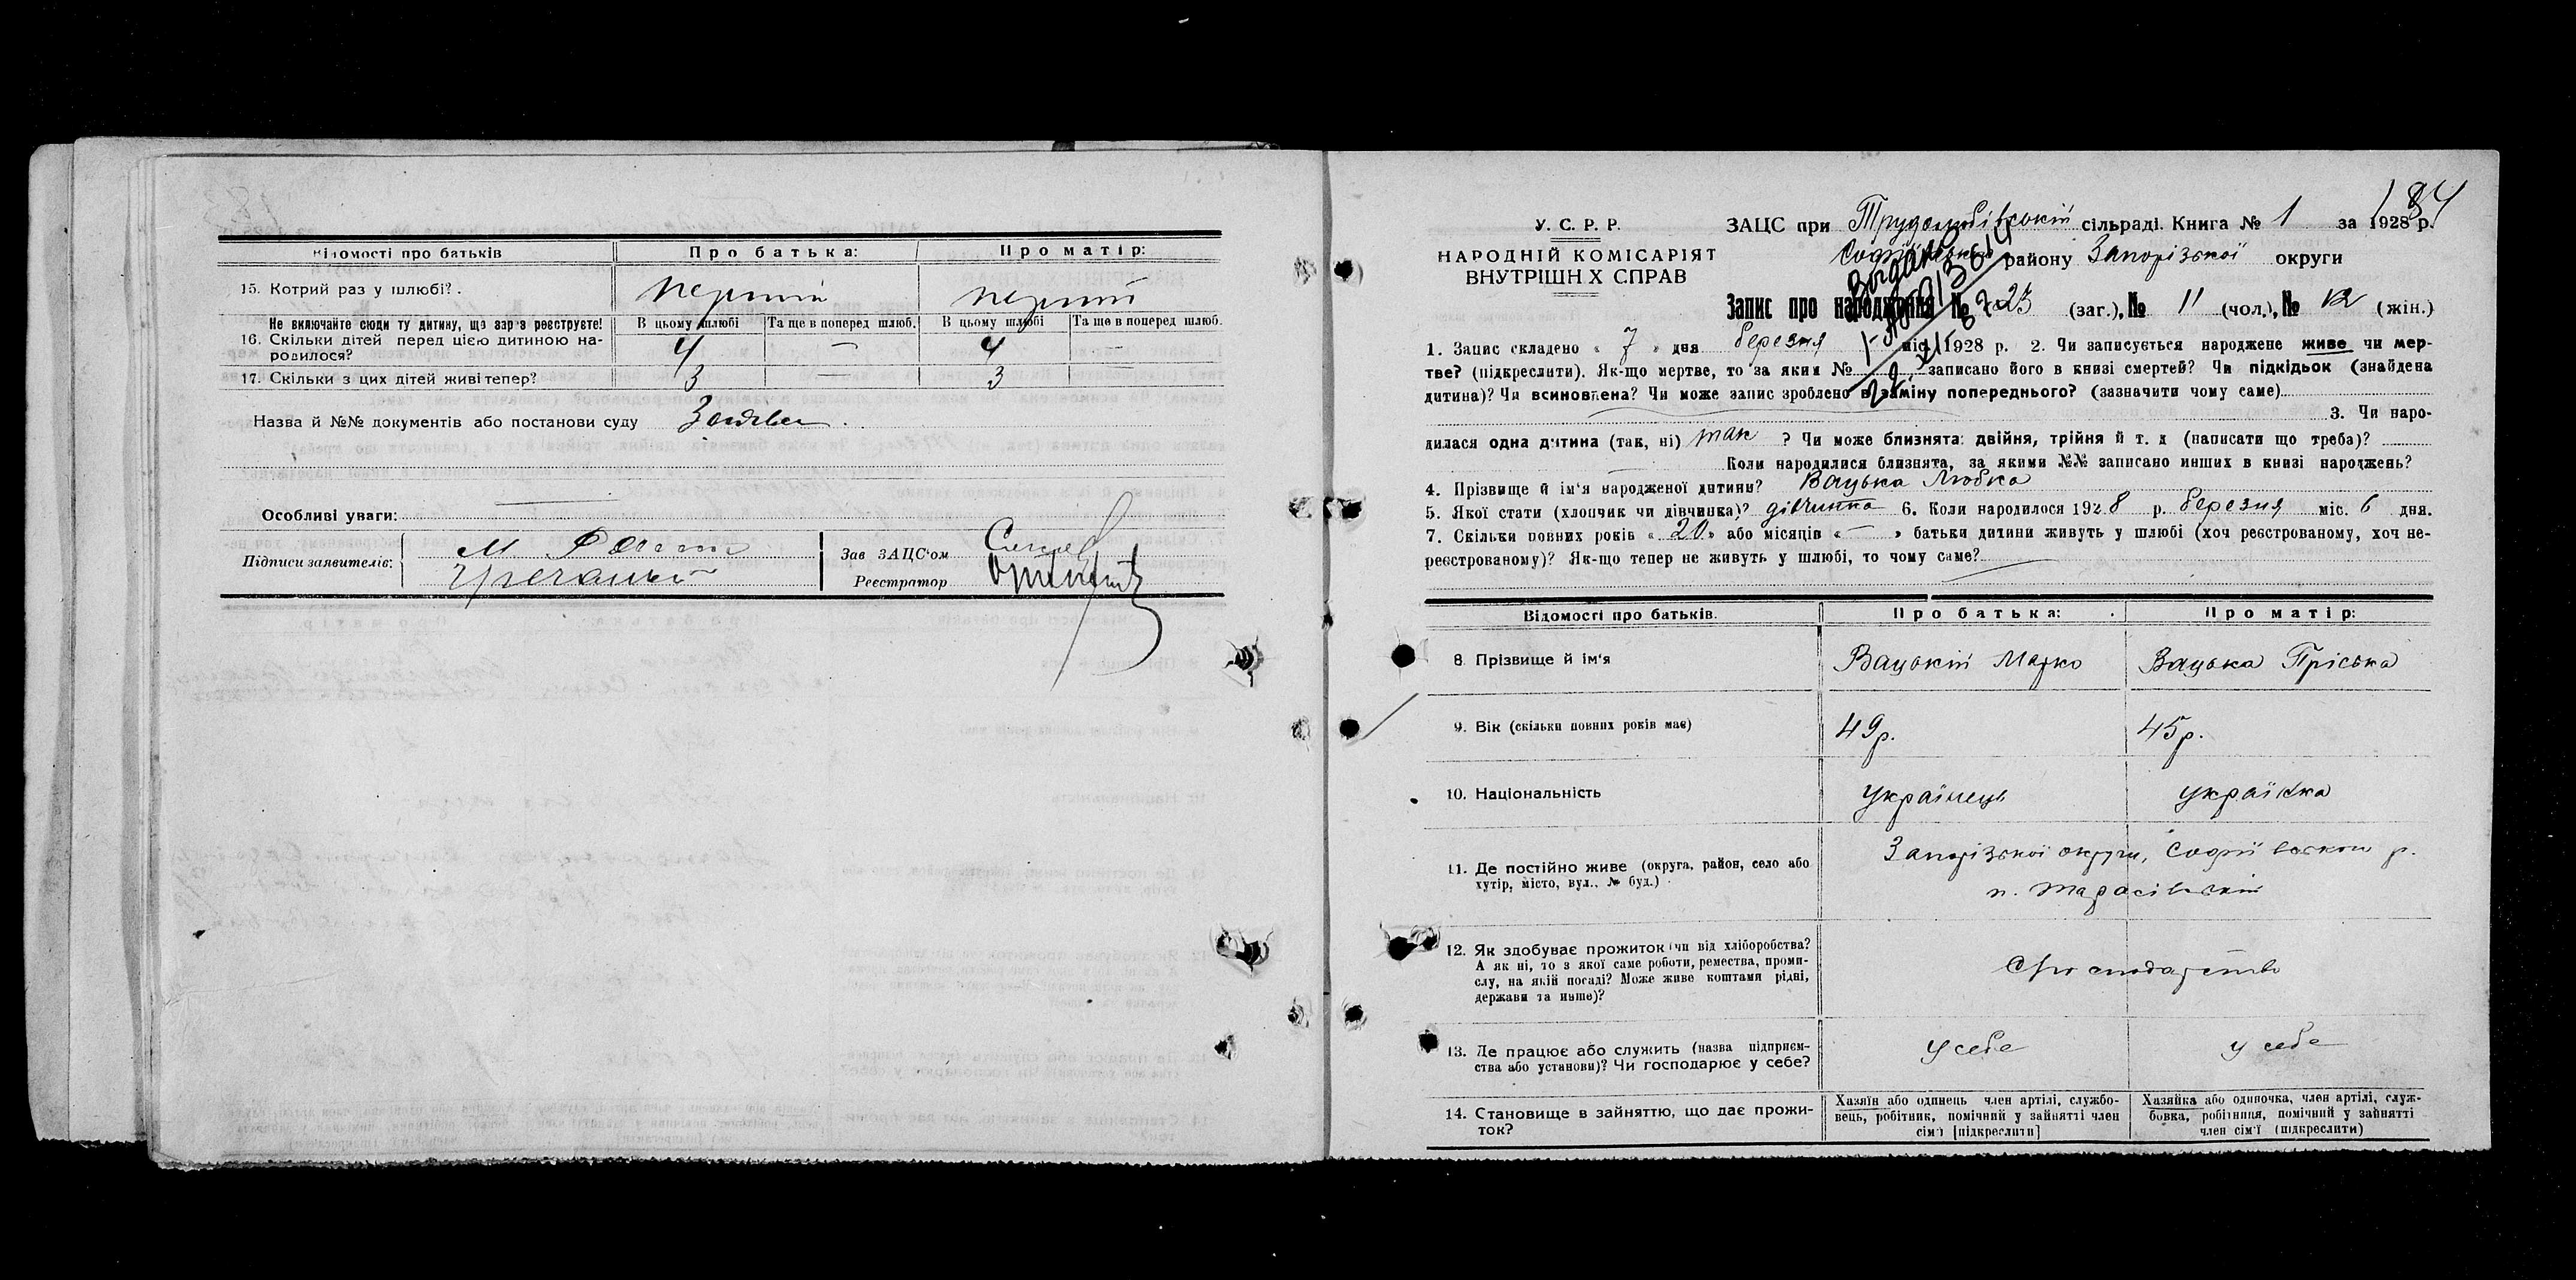 Відомості про батьків
Про батька:
Про матір:
15. Котрий раз у шлюбі?
перший
перший
Не включайте сюди ту дитину, що зараз реєструєте!
В цьому шлюбі
Та ще в поперед шлюб.
В цьому шлюбі
Та ще в поперед шлюб.
16. Скільки дітей перед цією дитиною на-
родилося?
4
—
4
—
17. Скільки з цих дітей живі тепер?
3
—
3
—
Назва й №№ документів або постанови суду
Особливі уваги:
Підписи заявителів:
М
Зав ЗАЦС'ом
Реєстратор
184
У. С. Р. Р.
НАРОДНІЙ КОМІСАРІЯТ
ВНУТРІШН Х СПРАВ
ЗАЦС при Трудолюбівській сільраді. Книга № 1 за 1928 р.
Софіївського району Запорізької округи
Запис про народження № 23 (заг.), № 11 (чол.), № 12 (жін.)
1. Запис складено « 7 » дня березня міс. 1928 р. 2. Чи записується народжене живе чи мер-
тве? (підкреслити). Як-що мертве, то за яким № записано його в книзі смертей? Чи підкідьок (знайдена
дитина)? Чи всиновлена? Чи може запис зроблено в заміну попереднього? (зазначити чому саме)
3. Чи наро-
дилася одна дитина (так, ні) так ? Чи може близнята: двійня, трійня й т. д (написати що треба)?
Коли народилися близнята, за якими №№ записано инших в книзі народжень?
4. Прізвище й ім'я народженої дитини? Вацька Любка
5. Якої стати (хлопчик чи дівчинка)? дівчинка 6. Коли народилося 1928 р. березня міс. 6 дня.
7. Скільки повних років « 20 » або місяців « — » батьки дитини живуть у шлюбі (хоч реєстрованому, хоч не-
реєстрованому)? Як-що тепер не живуть у шлюбі, то чому саме?
Відомості про батьків.
Про батька:
Про матір:
8. Прізвище й ім'я
Вацький Марко
Вацька Пріська
9. Вік (скільки повних років має)
49р.
45р.
10. Національність
українець
українка
11. Де постійно живе (округа, район, село або
хутір, місто, вул., № буд.)
Запорізької округи, Софіївського р.
п. Тарасівський
12. Як здобуває прожиток (чи від хліборобства?
А як ні, то з якої саме роботи, ремества, проми-
слу, на якій посаді? Може живе коштами рідні,
держави та инше)?
13. Де працює або служить (назва підприєм-
ства або установи)? Чи господарює у себе?
у себе
у себе
14. Становище в зайняттю, що дає прожи-
ток?
Хазяїн або одинець член артілі, службо-
вець, робітник, помічний у зайнятті член
сім'ї [підкреслити]
Хазяйка або одиночка, член артілі, служ-
бовка, робітниця, помічний у зайнятті
член сім'ї (підкреслити)